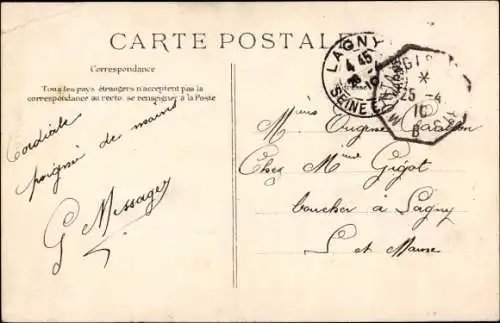 CARTE POSTALE
Correspondance
Tous les pays étrangers n'acceptent pas la
correspondance au recto, se renseigner à la Poste
LAGNY
4 45
SEINE
25-4
10
Cordiale
poignée de mains
G Message
Eugène
Chez Mme Gigot
boucher à Lagny
S et Marne